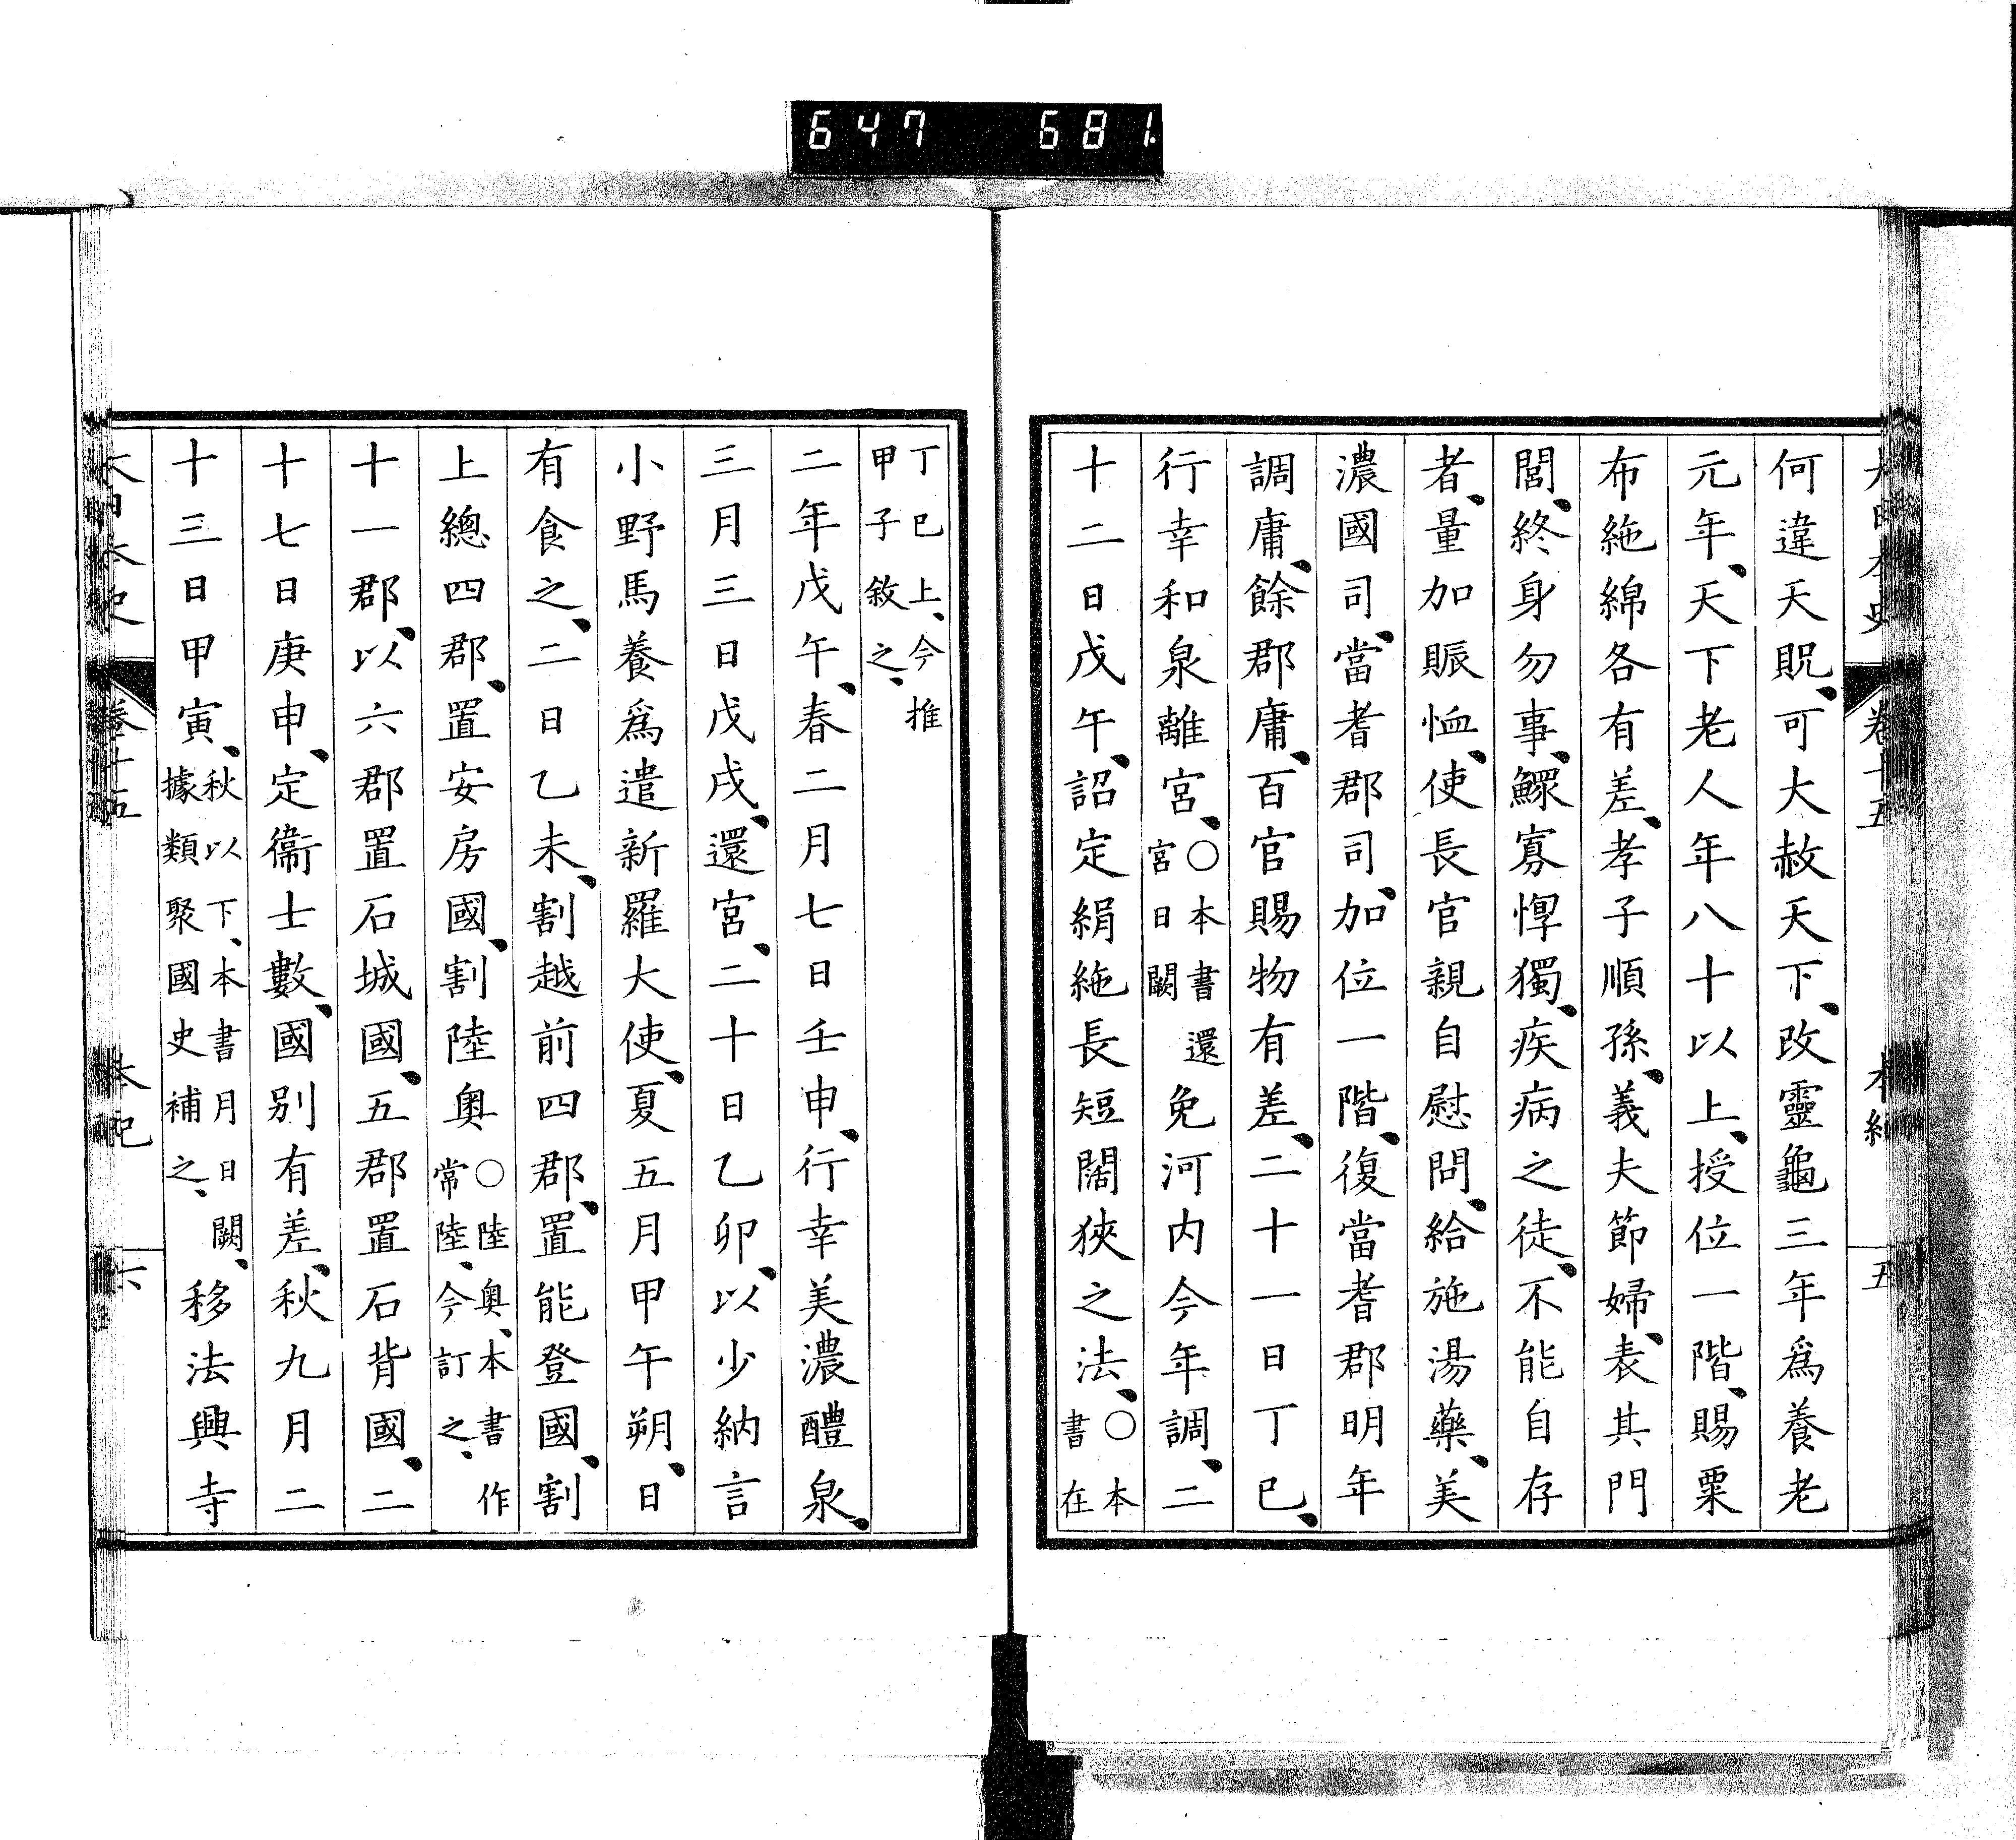 647 681
大日本史 卷十五 本紀 五
何違天貺、可大赦天下、改靈龜三年爲養老
元年、天下老人年八十以上、授位一階、賜粟
布絁綿各有差、孝子順孫、義夫節婦、表其門
閭、終身勿事、鰥寡惸獨、疾病之徒、不能自存
者、量加賑恤、使長官親自慰問、給施湯藥、美
濃國司、當耆郡司、加位一階、復當耆郡明年
調庸、餘郡庸、百官賜物有差、二十一日丁巳、
行幸和泉離宮、○本書還宮日闕免河内今年調、二
十二日戊午、詔定絹絁長短闊狹之法、○本書在
丁巳上、今推甲子敘之、
二年戊午、春二月七日壬申、行幸美濃醴泉、
三月三日戊戌、還宮、二十日乙卯、以少納言
小野馬養爲遣新羅大使、夏五月甲午朔、日
有食之、二日乙未、割越前四郡、置能登國、割
上總四郡、置安房國、割陸奥○陸奥、本書作常陸、今訂之、
十一郡、以六郡置石城國、五郡置石背國、二
十七日庚申、定衞士數、國別有差、秋九月二
十三日甲寅、秋以下、本書月日闕、據類聚國史補之、移法興寺
大日本史 卷十五 本紀 六